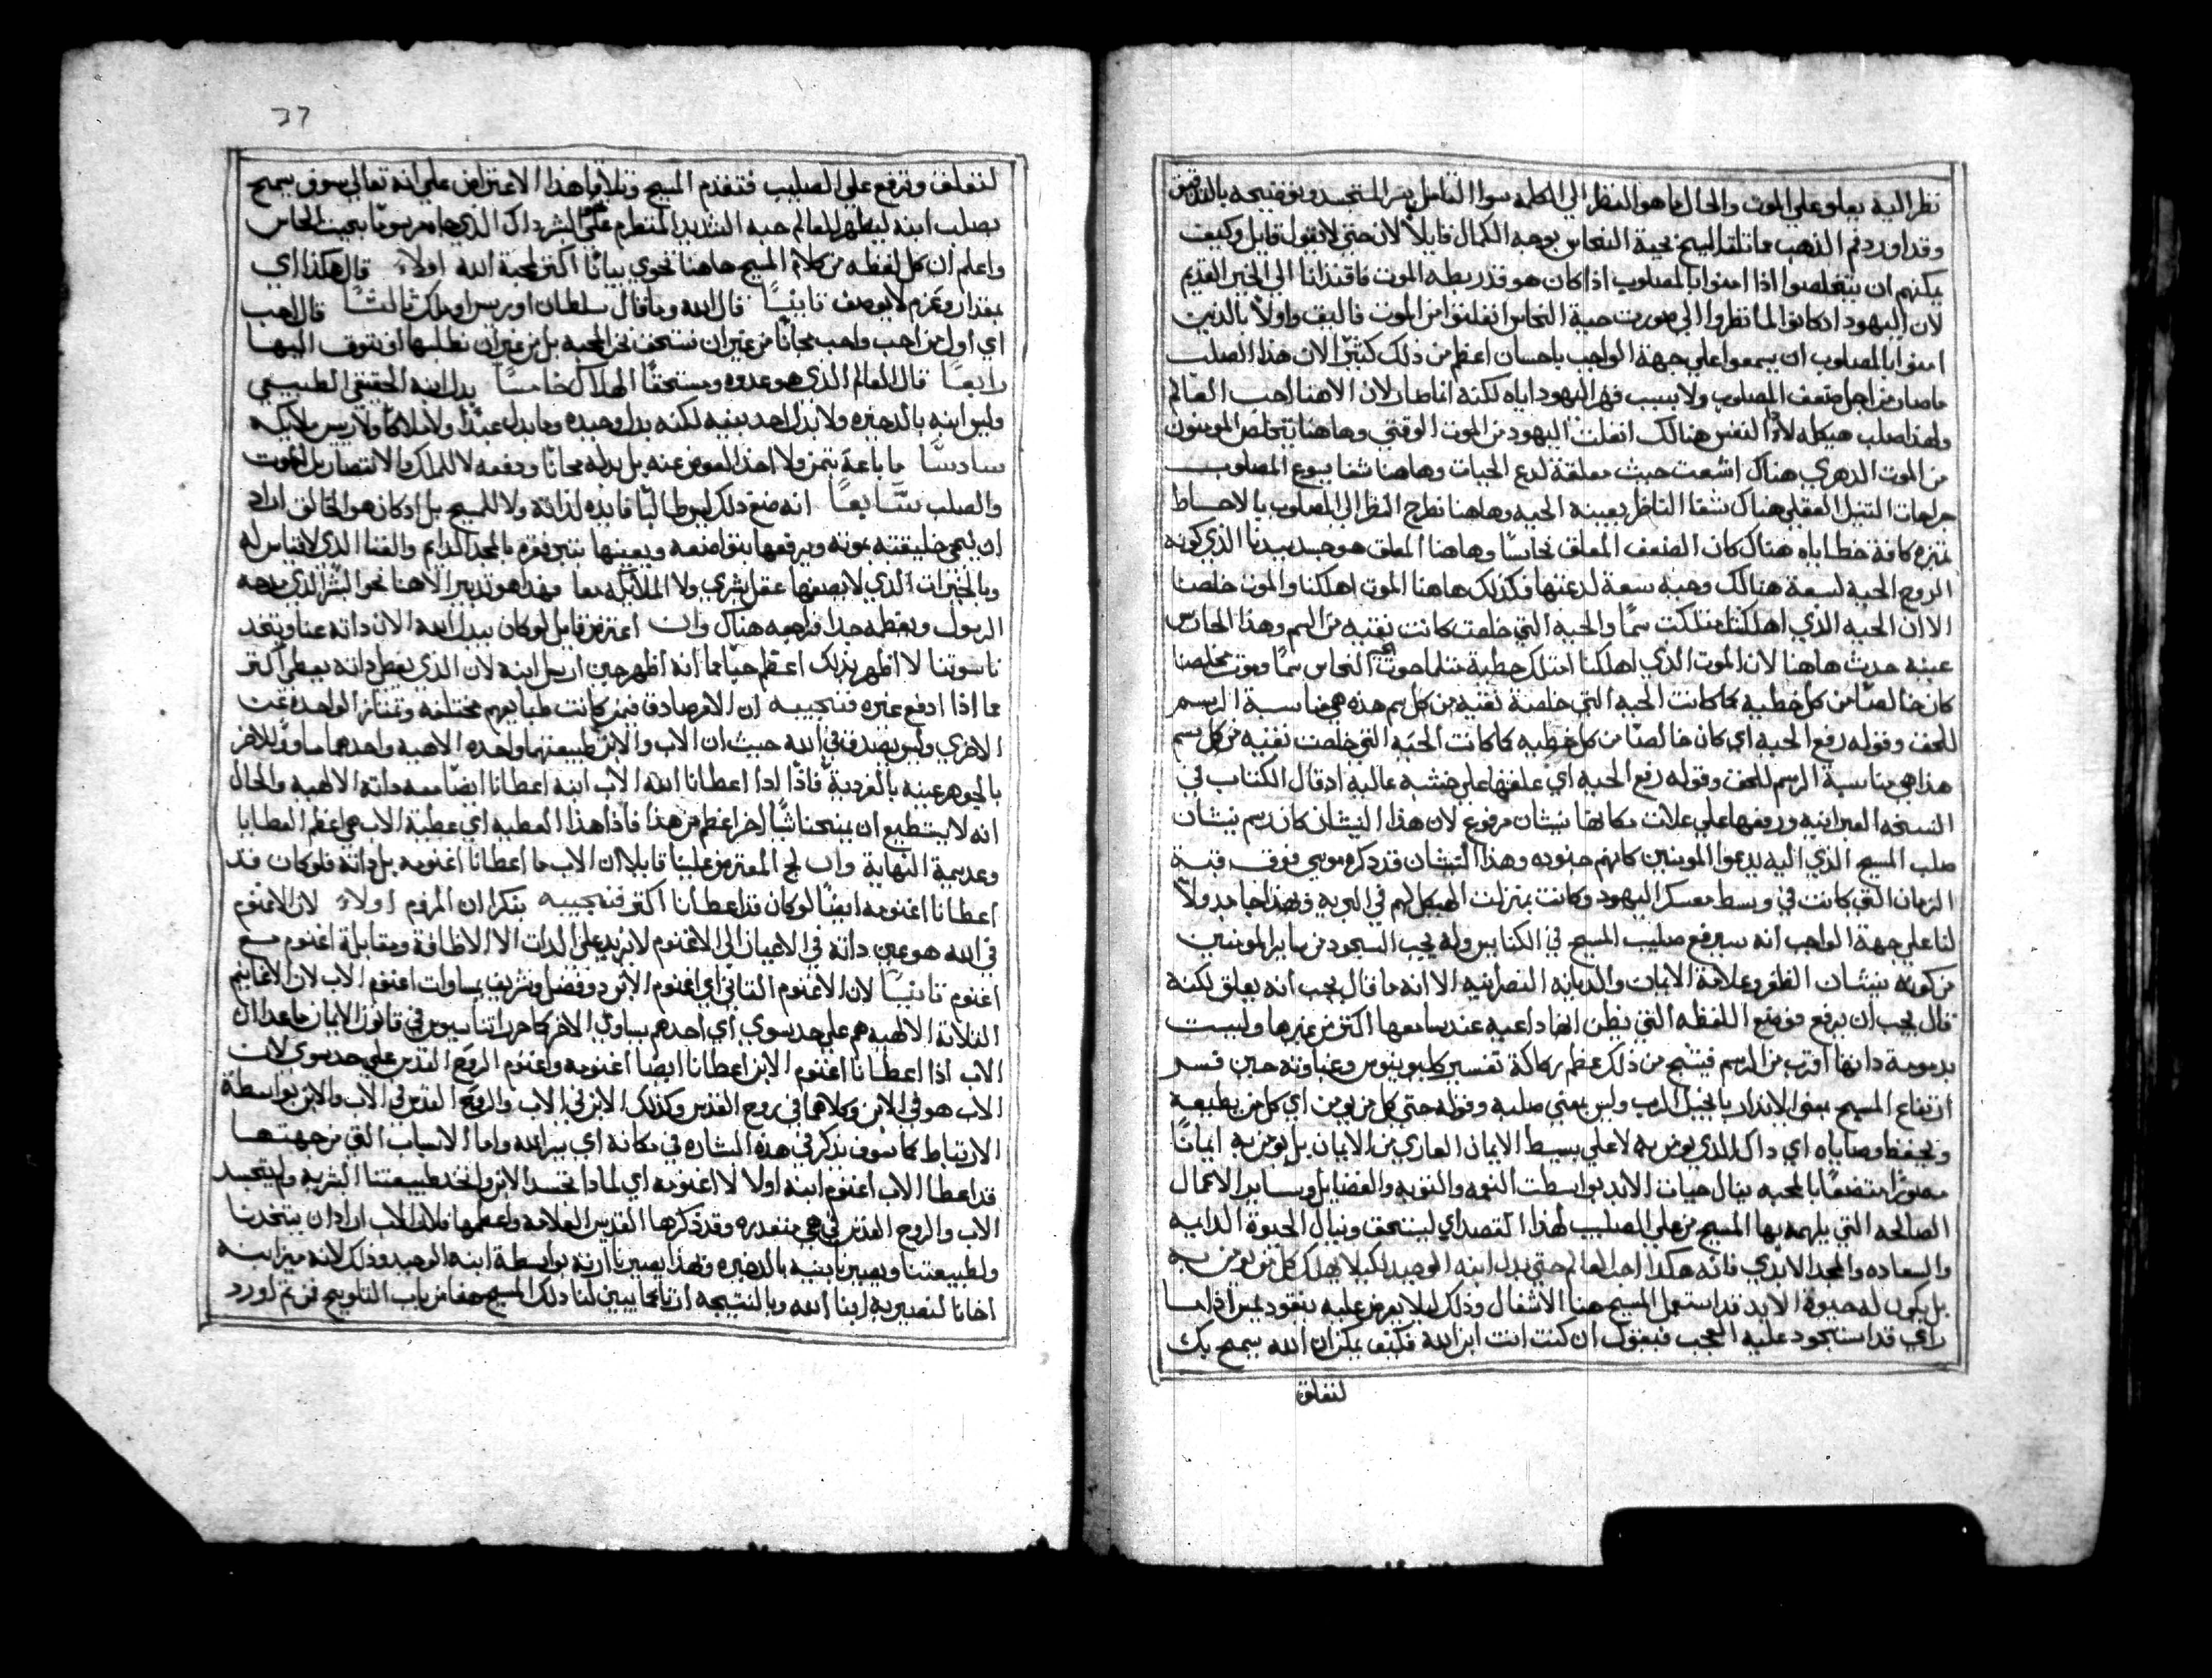 نظر اليه يعلو علي الموت والحال ما هو النظر الي الكلمة سوا التامل بسر المتجسد وبوضيحه بالقديس
وقد اورد فم الذهب ما تلقا المسيح بحية النحاس بوجه الكمال قايلاً لان حتي لا يقول قايل وكيف
يمكنهم ان يتخلصوا اذا امنوا بالمصلوب اذا كان هو قد ربطه الموت فاقتدانا الي الخبر القديم
لان اليهود اذ كانوا لما نظروا الي صورت حية النحاس انفلتوا من الموت فاليق واولاً بالذين
امنوا بالمصلوب ان يسمعوا علي جهة الواجب باحسان اعظم من ذلك كثيراً لان هذا الصلب
ما صار من اجل ضعف المصلوب ولا بسبب قهر اليهود اياه لكنه انما صار لان الاهنا احب العالم
ولهذا صلب هيكله لاذو النفس هنالك انفلت اليهود من الموت الوقتي وهاهنا يتخلص المومنون
من الموت الدهري هناك اشفت حيث معلقة لدع الحيات وهاهنا شفا يسوع المصلوب
جراحات التنين العقلي هناك شفا الناظر بعينه الحيه وهاهنا نطرح النظر الي المصلوب بالاحساط
تنزه كافة خطاياه هناك كان الضعف المعلق نحاسًا وهاهنا المعلق هو جسد سيدنا الذي كونه
الروح الحية لسعة هنالك وهبه سعة لدعتها فكذلك هاهنا الموت اهلكنا والموت خلصنا
الا ان الحيه الذي اهلكتنا امتلكت سمًا والحيه التي خلصت كانت نقيه من السم وهذا الحادس
عينه حدث هاهنا لان الموت الذي اهلكنا امتلك خطية مثلما حوت النحاس سمًا وموت مخلصنا
كان خالصًا من كل خطيه كما كانت الحيه التي خلصة نقيه من كل سم هذه هي مناسبة الرسم
للحق وقوله رفع الحيه اي كان خالصًا من كل خطيه كما كانت الحيه التي خلصت نقيه من كل سم
هذا هي مناسبة الرسم للحق وقوله رفع الحيه اي علقها علي خشبه عاليه اذ قال الكتاب في
النسخه العبرانيه ورفعها علي علات مكانها نيشان مرفوع لان هذا النيشان كان رسم نيشان
صلب المسيح الذي اليه يدعوا المومنين كانهم جنوده وهذا النيشان قد ذكره موسي فوق قبة
الزمان التي كانت في وسط معسكر اليهود وكانت بمنزلت الهيكل لهم في البريه وهذا جا جدولاً
لنا علي جهة الواجب انه سيرفع صليب المسيح في الكنايس وله يجب السجود من ساير المومنين
من كونه نيشان الظفر وعلامة الايمان والديانه النصرانيه الا انه ما قال يجب انه يعلق لكنه
قال يجب ان يرفع فوضع اللفظه التي يظن انها داعيه عند سامعها اكثر من غيرها وليست
بدمومة ذاتها اقرب من الرسم فنتج من ذلك عظم ركاكة تفسير كلوينوس وغباوته حين فسر
ارتفاع المسيح بمعني الانذار بانجيل الرب وليس بمعني صلبه وقوله حتي كل من يومن اي كل من يطيعه
وتحفظ وصاياه اي داك الذي يومن به لا علي بسيط الايمان العاري من الايمان بل يومن به ايمانًا
مصورًا متضعًا بالمحبه ينال حيات الابد بواسطت النعمه والتوبه والفضايل وساير الاعمال
الصالحه التي يلهمه بها المسيح من علي الصليب لهذا القصد اي ليستحق وينال الحيوة الدايمه
والسعاده والمجد الابدي فانه هكذا احب العالم حتي بدل ابنه الوحيد لكيلا يهلك كل من يومن به
بل يكون له حيوة الابد قد استعمل المسيح هنا الاشغال وذلك ليلا يعرض عليه نيقوديموس اذ انما
راي قد استحود عليه العجب فيقول ان كنت انت ابن الله فكيف يمكن ان الله يسمح بك
لتعلق
37
لتعلق وترفع علي الصليب فتقدم المسيح وتلافا هذا الاعتراض علي انه تعالي سوف يسمح
بصلب ابنه ليظهر للعالم حبه الشديد المتضرم علي البشر داك الذي هاهو مرسومًا بحيث النحاس
واعلم ان كل لفظه من كلام المسيح هاهنا تحوي بيانًا اكثر لمحبة الله اولاً قال هكذا اي
بمقدار وعزم لا يوصف ثانيًا قال الله وما قال سلطان او ريس او ملك ثالثًا قال احب
اي اول من احب واحب مجانًا من غير ان نستحق نحن المحبه بل من غير ان نطلبها او نتوق اليها
رابعًا قال العالم الذي هو عدوه ومستحقًا الهلاك خامسًا بدل ابنه الحقيقي الطبيعي
وليس ابنه بالدخيره ولا بدل احد بنيه لكنه بدل وحيده وما بدل عبدًا ولا ملاكًا ولا ريس ملايكه
سادسًا ما باعه بثمن ولا اخذ العوض عنه بل بدله مجانًا ودفعه لا للملك والانتصار بل للموت
والصلب سابعًا انه صنع ذلك ليس طالبًا فايده لذاته ولا للمسيح بل اذ كان هو الخالق اراد
ان يحيي خليقته بموته ويرفعها بتواضعه ويعينها بنير فقره بالمجد الدايم والغنا الذي لا يقاس له
وبالخيرات الذي لا يصفها عقل بشري ولا الملايكه معا وهذا هو تدبير الاهنا نحو البشر الذي مدحه
الرسول ويعظه جدا فراجعه هناك وان اعترض قايل لو كان يبدل الله الاب ذاته عنا ويتخد
ناسوتنا لا اظهر بذلك اعظم حبًا مما انه اظهر حين ارسل ابنه لان الذي يعطي ذاته يعطي اكثر
مما اذا ادفع غيره فنجيبه ان الامر صادق فيمن كانت طبايعهم مختلفه وتمتاز الواحده عن
الاخري وليس يصدق في الله حيث ان الاب والابن طبيعتهما واحده الاهيه واحدهما مساوي للاخر
بالجوهر عينه بالفردية فاذًا اذا اعطانا الله الاب ابنه اعطانا ايضًا معه داته الالهيه والحال
انه لا يستطيع ان يمنحنا شيًا اخر اعظم من هذا فاذا هذا العطيه اي عطية الاب هي اعظم العطايا
وعديمة النهاية وان لج المعترض علينا قايلا ان الاب ما اعطانا اغنومه بل ذاته فلو كان قد
اعطانا اغنومه ايضًا لو كان قد اعطانا اكثر فنجيبه بنكران المزوم اولاً لان الاغنوم
في الله هو عين داته في الاعيان الي الاغنوم لا يزيد علي الدات الا الاظافة ومقابلة اغنوم مع
اغنوم ثانيًا لان الاغنوم الثاني اي اغنوم الابن دو فضل وشريف بمساوات اغنوم الاب لان الاغانيم
الثلاثة الالهيه هم علي حد سوي اي احدهم يساوي الاخر كما حرر اتناسيوس في قانون الايمان ما عدا ان
الاب اذا اعطانا اغنوم الابن اعطانا ايضا اغنومه واغنوم الروح القدس علي حد سوي لان
الاب هو في الابن وكلاهما في روح القدس وكذلك الابن في الاب والروح القدس في الاب والابن بواسطة
الارتباط كما سوف يذكر في هذه البشاره في مكانه اي بيرالله واما الاسباب التي من جهتها
قد اعطا الاب اغنوم ابنه اولا لا اغنومه اي لماذا تجسد الابن واتخد طبيعتنا البشريه ولم يتجسد
الاب والروح القدس فهي متعدده وقد ذكرها القديس العلامه واعظمها فلان الاب اراد ان يتخدنا
ولطبيعتنا ويصيرنا بنيه بالدخيره وهذا يصيرنا ارثه بواسطة ابنه الوحيد وذلك لانه ميز ابنه
اخانا لنصير به ابنا الله وبالنتيجه ارثا كما يبين لنا ذلك المسيح حقا من باب التلويح فمن ثم اورد